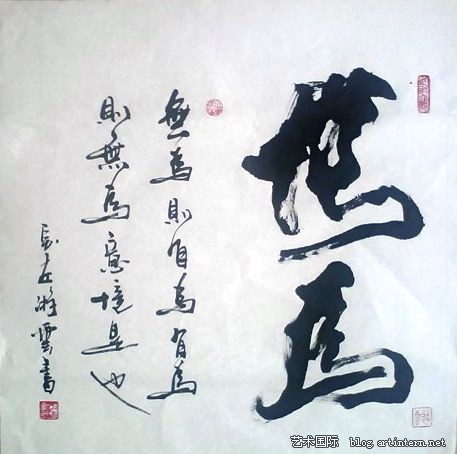 無為
無為則有為有為
則無為意境是也
游雲書
艺术国际 blog.artintern.net